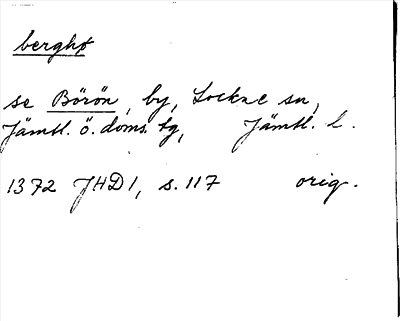 berghø
se Börön, by, Lockne sn,
Jämtl. ö. doms. tg, Jämtl. l.
1372 JHD1, s. 117 orig.